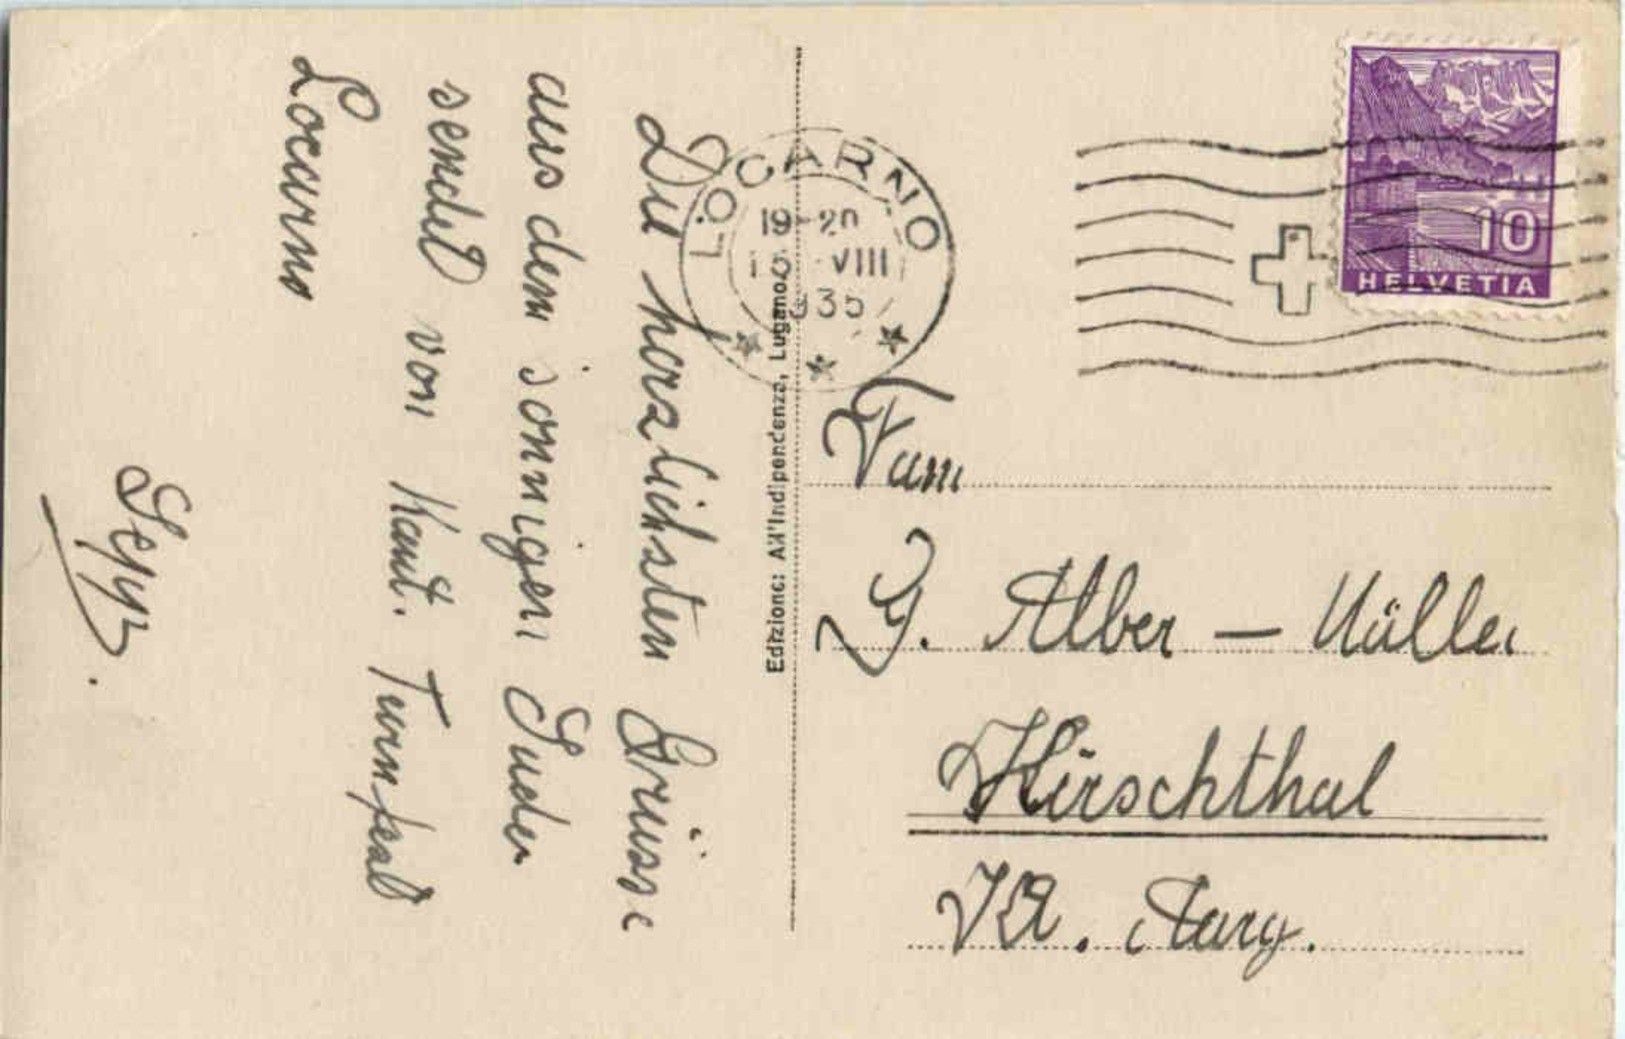 Die herzlichsten Grüsse
aus dem sonnigen Süden
sendet von Kant. Turnfest
Locarno
Sepp.
Edizione: All'Indipendenza, Lugano
LOCARNO
19-20
VIII
1935
10
HELVETIA
Fam
G. Alber - Müller
Hirschthal
Kt. Aarg.